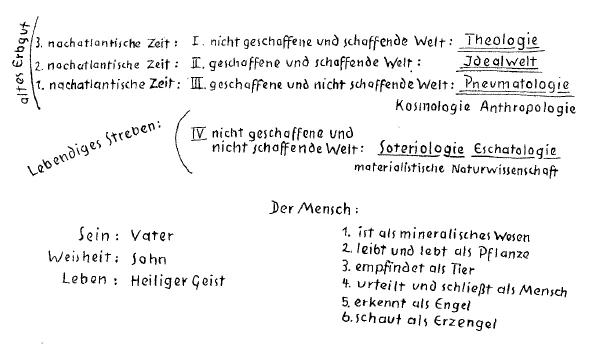 altes Erbgut
3. nachatlantische Zeit: I. nicht geschaffene und schaffende Welt: Theologie
2. nachatlantische Zeit: II. geschaffene und schaffende Welt: Idealwelt
1. nachatlantische Zeit: III. geschaffene und nicht schaffende Welt: Pneumatologie
Kosmologie Anthropologie
Lebendiges Streben:
IV nicht geschaffene und
nicht schaffende Welt: Soteriologie Eschatologie
materialistische Naturwissenschaft
Der Mensch:
Sein: Vater
Weisheit: Sohn
Leben: Heiliger Geist
1. ist als mineralisches Wesen
2. leibt und lebt als Pflanze
3. empfindet als Tier
4. urteilt und schließt als Mensch
5. erkennt als Engel
6. schaut als Erzengel